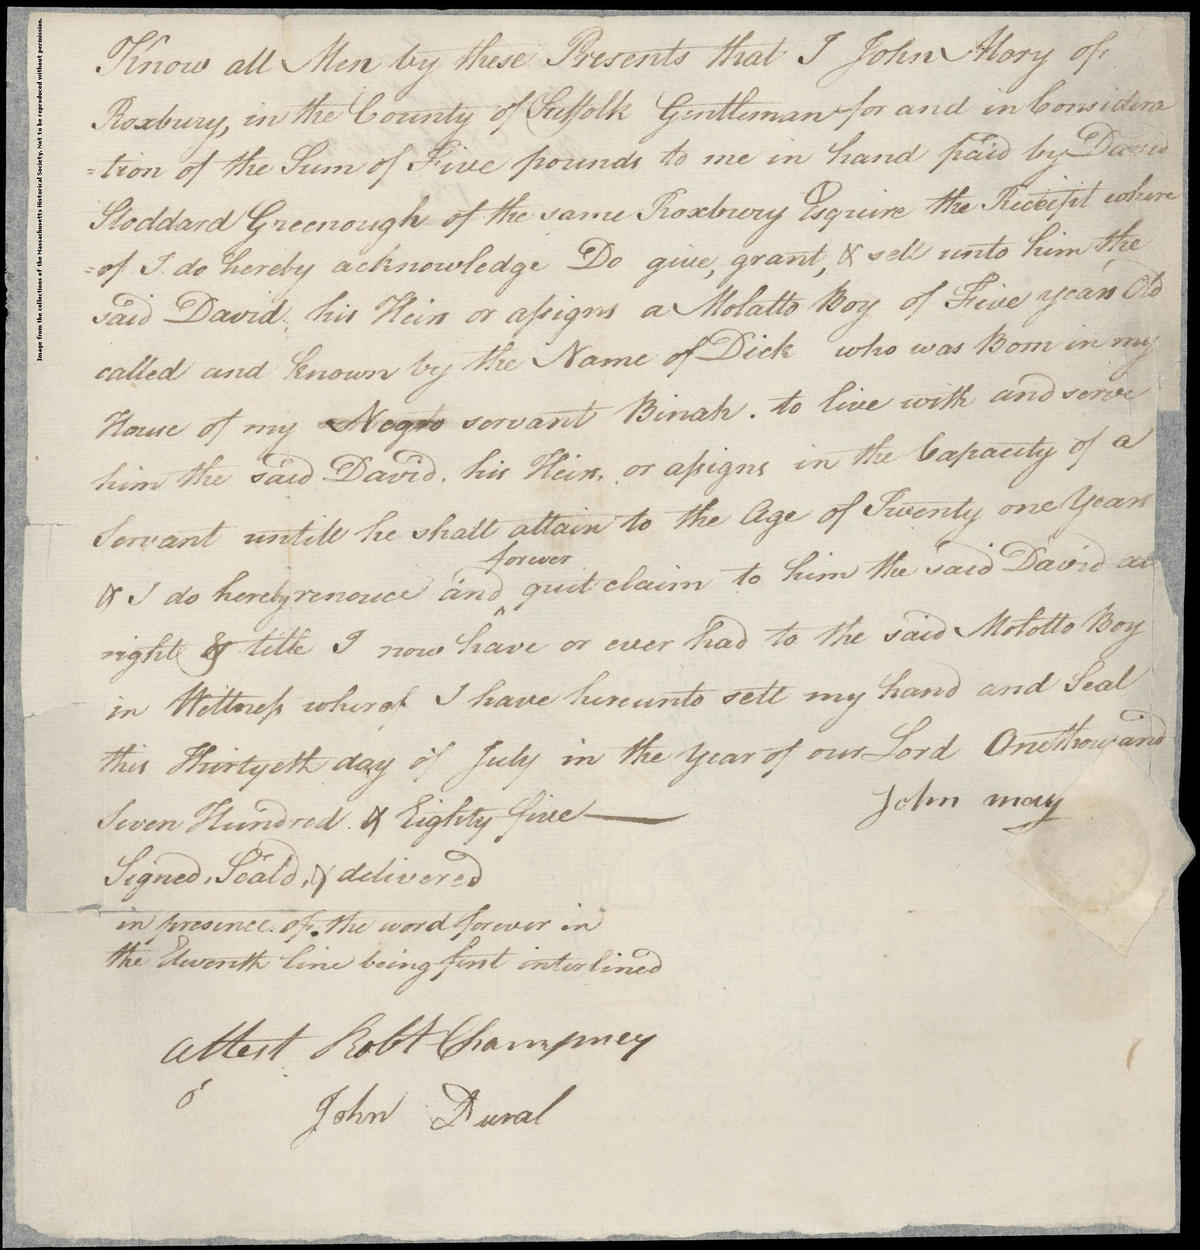 Image from the collections of the Massachusetts Historical Society. Not to be reproduced without permission.
Know all Men by these Presents that I John Mory of
Roxbury, in the County of Suffolk Gentleman for and in Considera
=tion of the Sum of Five pounds to me in hand paid by David
Stoddard Greenough of the same Roxbury Esquire the Receipt where
=of I do hereby acknowledge Do give, grant, & sell unto him the
said David, his Heirs or assigns a Molatto Boy of Five years Old
called and known by the Name of Dick who was Born in my
House of my Negro servant Binah. to live with and serve
him the said David. his Heirs, or assigns in the Capacity of a
Servant untill he shall attain to the Age of Twenty one Years
forever
& I do hereby renouce and ^ quit claim to him the said David all
right & title I now have or ever had to the said Molotto Boy
in Wittness wherof I have hereunto sett my hand and Seal
this Thirtyeth day of July in the Year of our Lord One thousand
Seven Hundred & Eighty five
John may
Signed, Seald, & delivered
in presence of. the word forever in
the Eleventh line being first interlined
Attest Robt Champney
John Dural